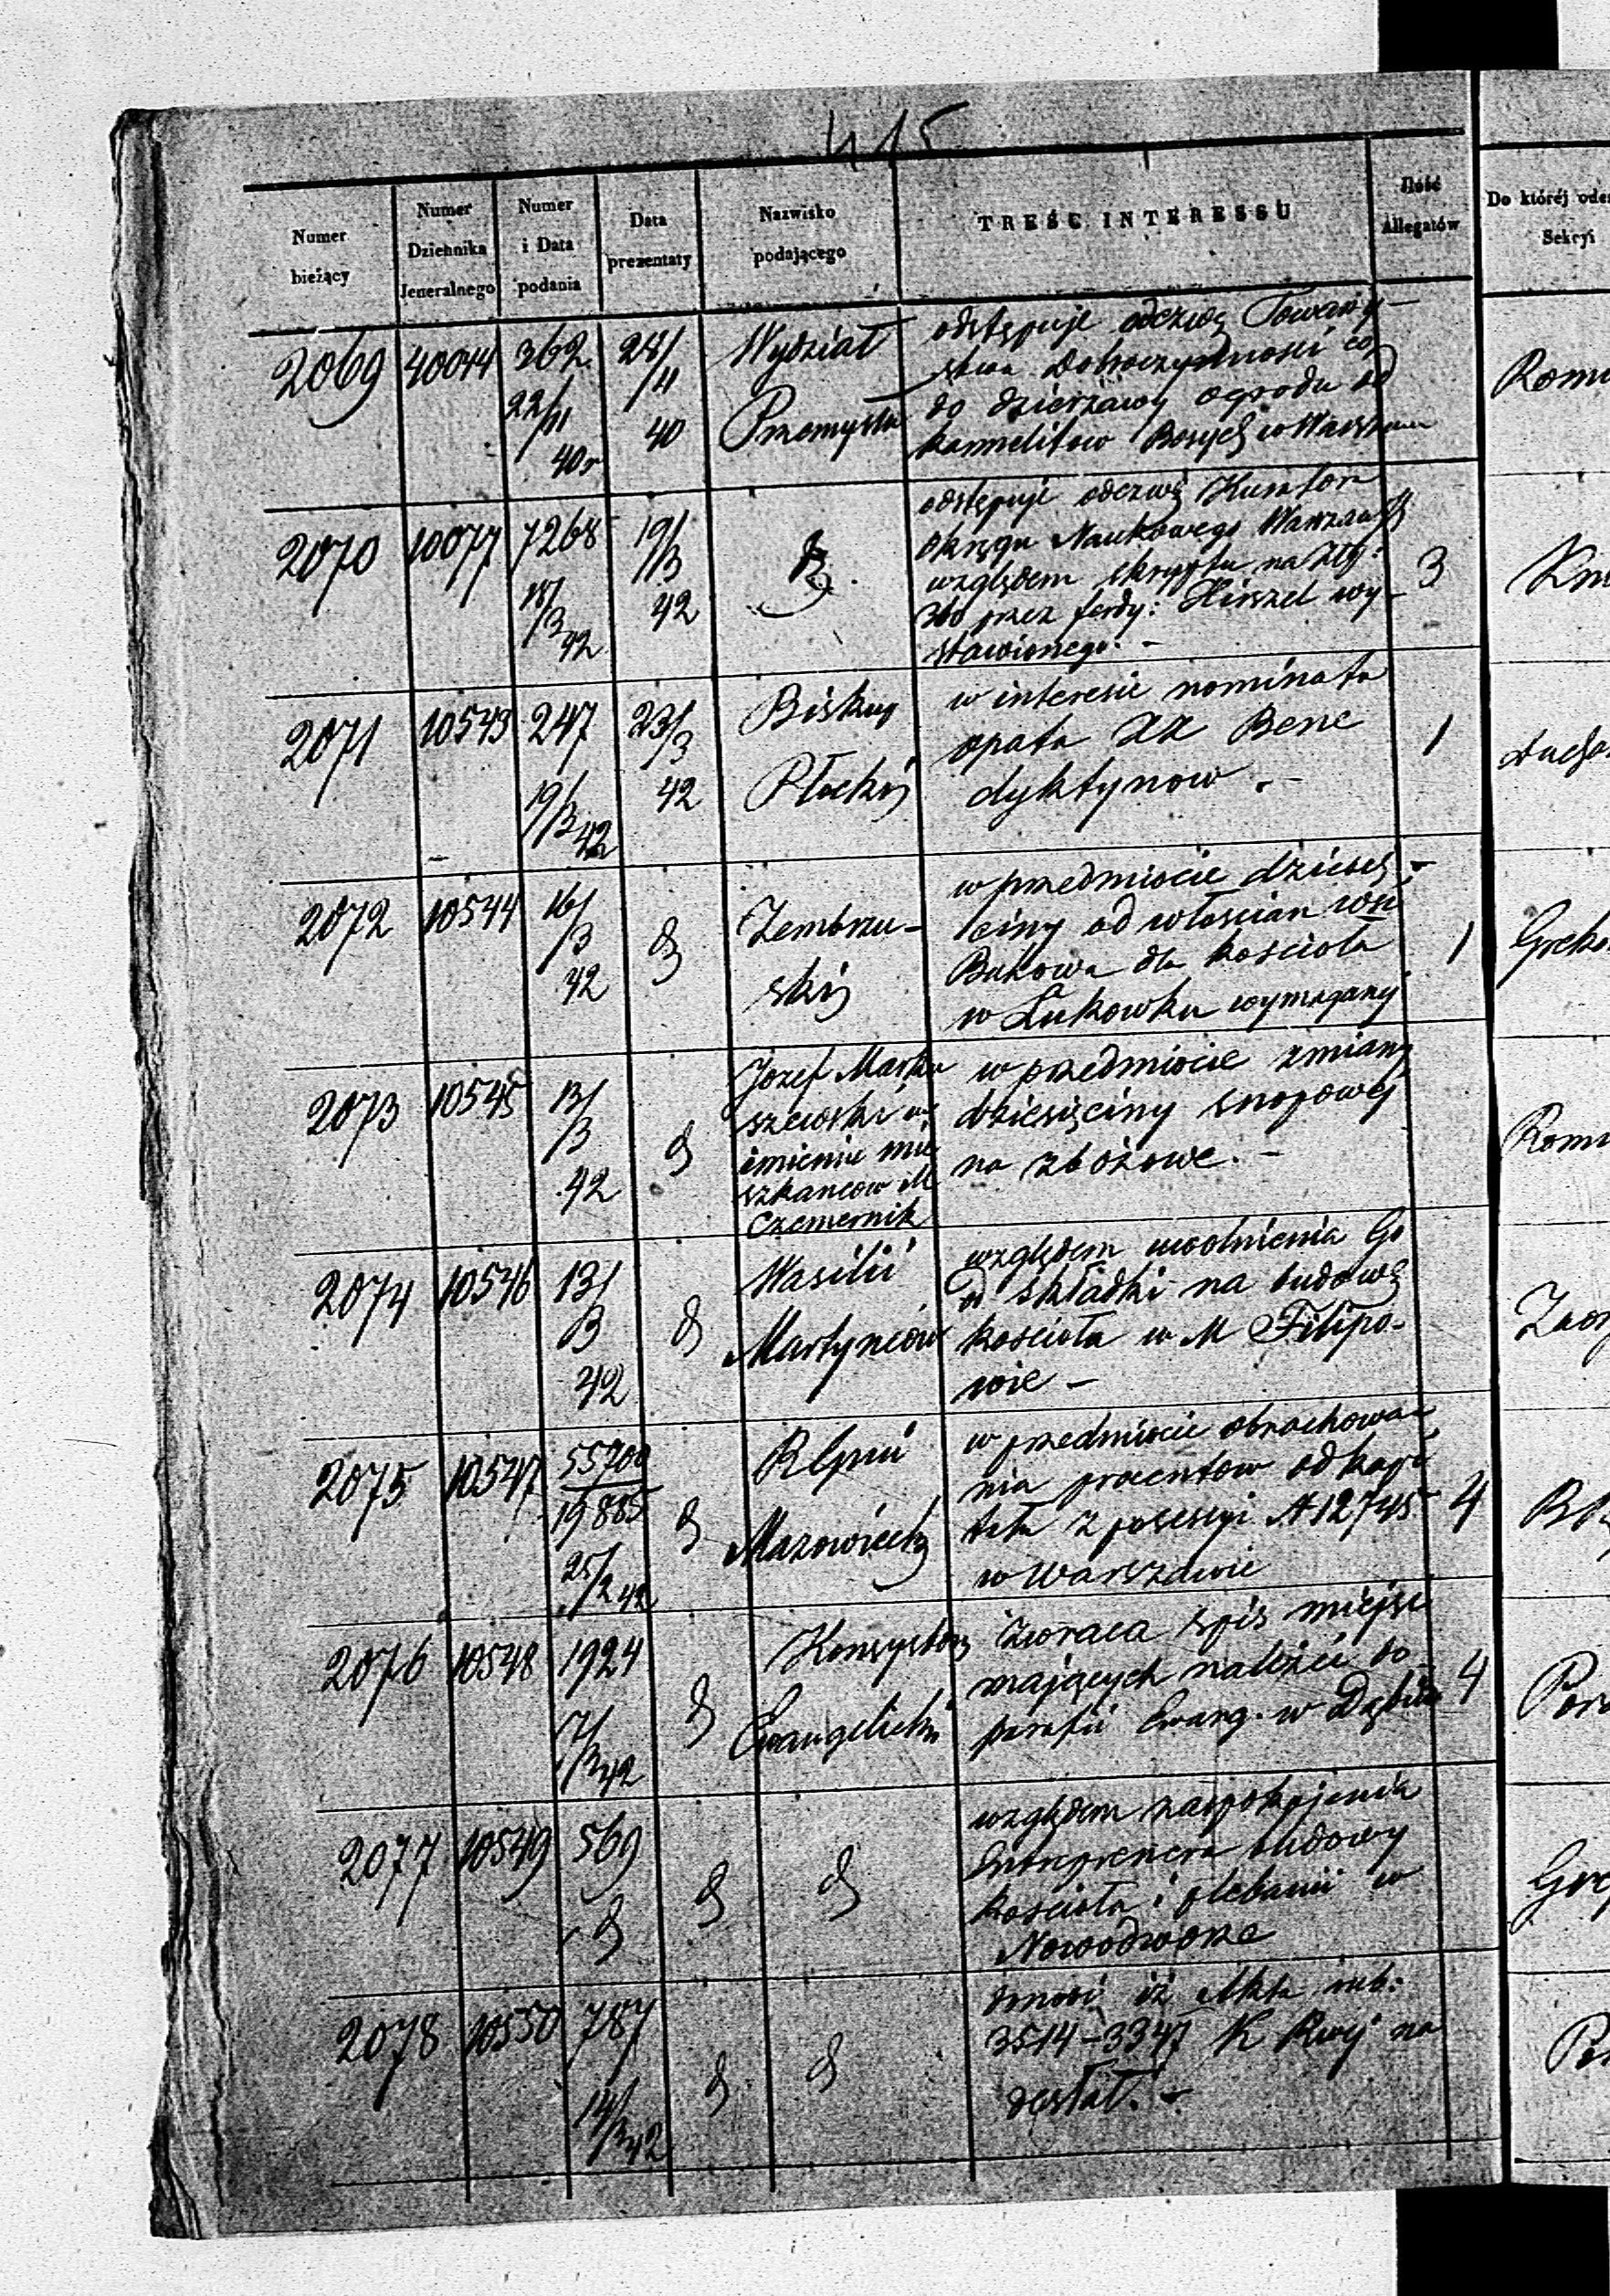 415
Numer bieżący
Numer Dziennika Jeneralnego
Numer i Data podania
Data prezentaty
Nazwisko podającego
TREŚĆ INTERESSU
Ilość Allegatów
Do której
Sekcyi
2069 40044 362 22/11 40r 24/11 40 Wydział Przemysłu
odstępuje odezwę Towarzy-
stwa Dobroczynności co
do dzierżawy ogrodu od
karmelitow Bosych w Warszawie
2070 10077 7268 18/3 42 19/3 42
odstępuje odezwę Kuratora
Okręgu Naukowego Warszaws
względem skryptu na złp:
360 przez ferdy: Hirszel wy-
stawionego. -
3
2071 10543 247 19/3 42 23/3 42 Biskup Płocki
w interesie nominata
opata XX Bene
dyktynow. -
1
2072 10544 16/3 42 d Zembrzu-
ski
w przedmiocie dziesię-
ciny od włościan wsi
Bukowa dla kościoła
w Łukowku wymaganej
1
2073 10545 13/3 42 d Jozef Marku
szewski w
imieniu mie
szkancow M
Czemernik
w przedmiocie zmiany
dziesięciny snopowej
na zbożowe. -
2074 10546 13/3 42 d Wasilii
Martyncow
względem uwolnienia Go
od składki na budowę
kościoła w M Filipo-
wie -
2075 10547 55700/19885 25/2 42 d
Mazowiecki
w przedmiocie obrachowa-
nia procentow od kapi
tału z posessyi N 12745
w Warszawie
4
2076 10548 1924 17/3 42 d Konsystorz
Ewangelicki
zwraca spis miejsc
mających należeć do
parafii Ewang. w Dąbiu
4
2077 10549 569 d d d
względem zaspokojenia
Entreprenera budowy
kościoła i plebanii w
Nowodworze
2078 10550 787 14/3 42 d d
donosi iż Akta sub:
3514-3347 K Rząj na
desłał. -